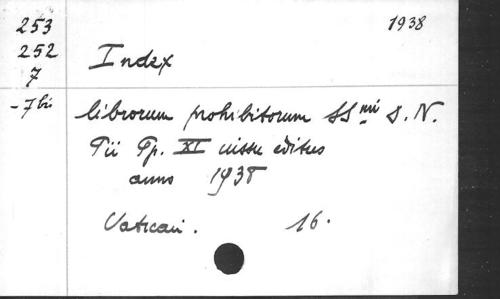 253
252
7
- 7 bis
1938
Index
librorum prohibitorum SSmi D. N.
Pii Pp. XI iussu editus
anno 1938
Vatican. 16.